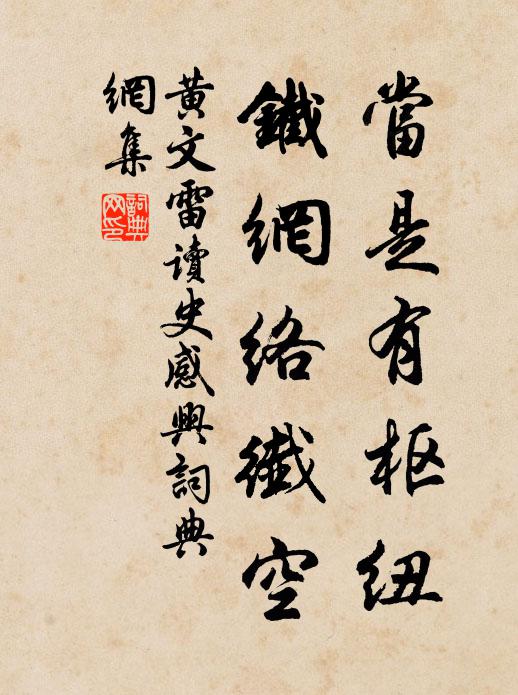 當是有枢紐
鐵網络纖空
黄文雷讀史感興詞典
網集
詞典
网印